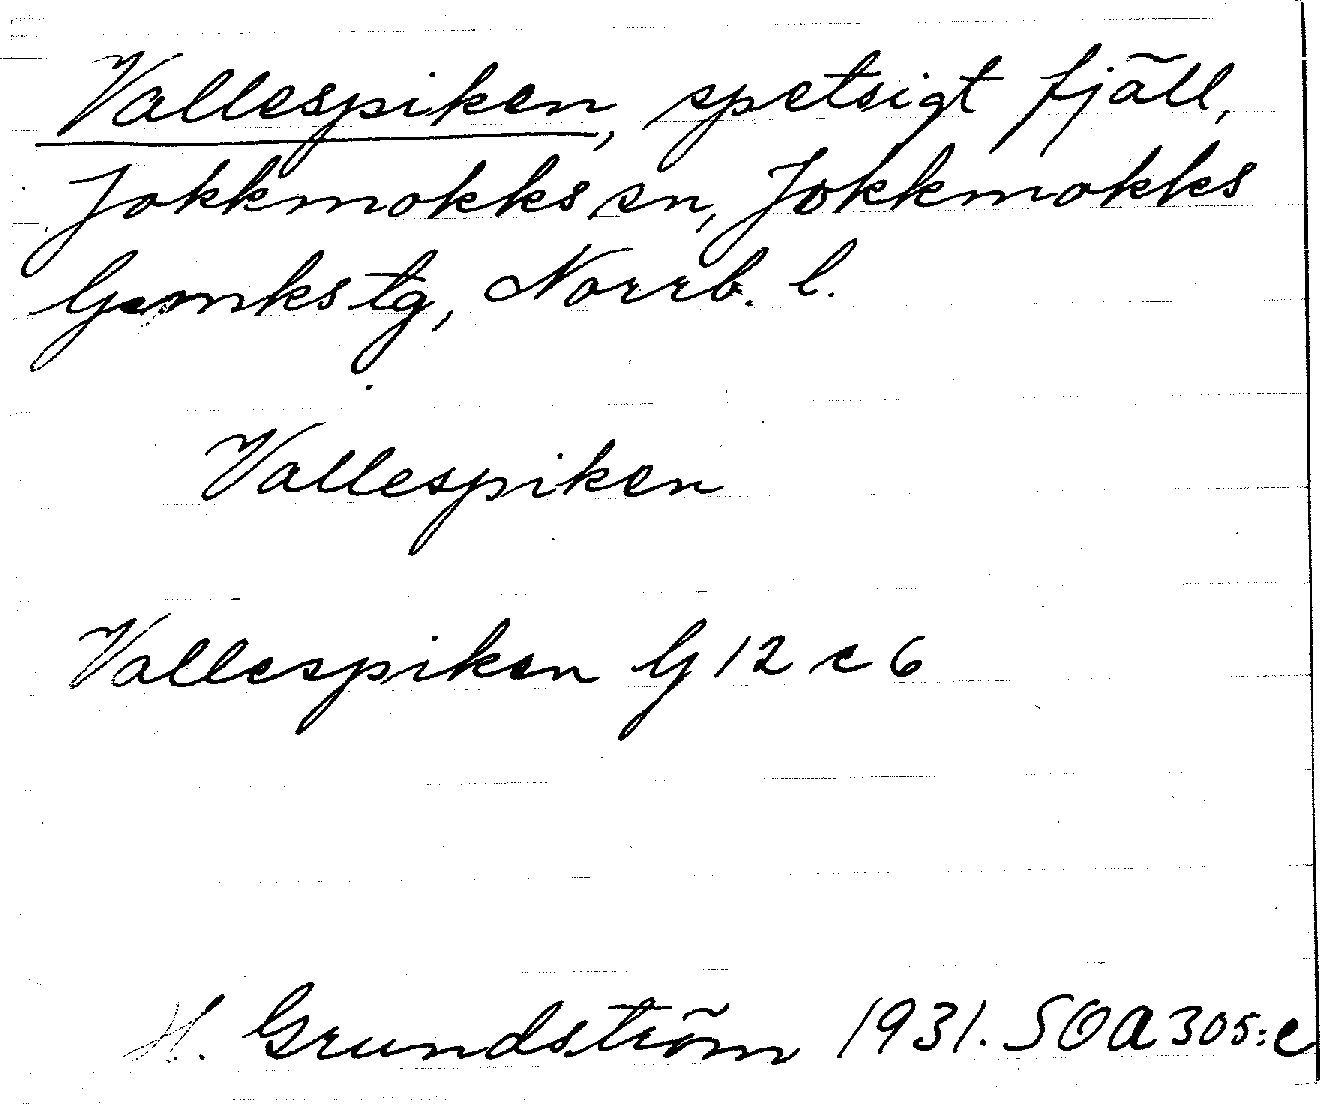 Vallespiken, spetsigt fjäll,
Jokkmokks sn, Jokkmokks
lpmks tg, Norrb. l.
Vallespiken
Vallespiken G 12 c 6
H. Grundström 1931. SOA 305:e